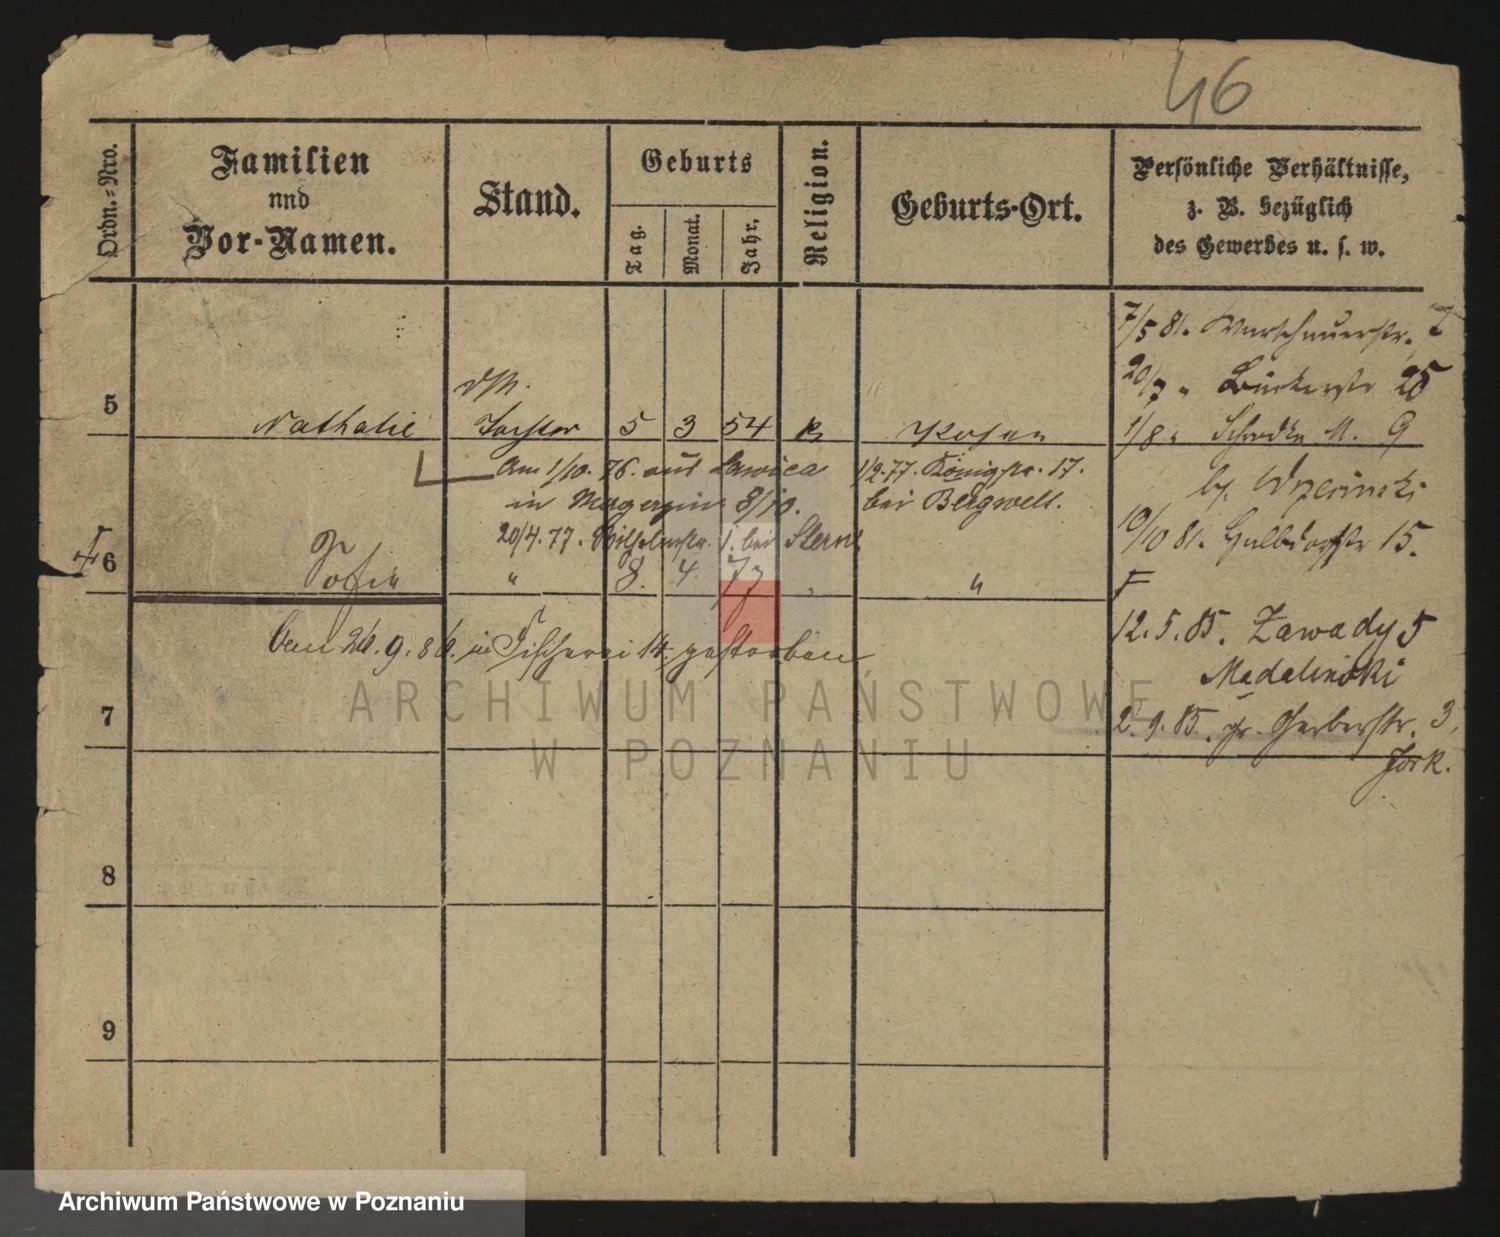 46
Ordn.-Nro.
Familien
und
Vor-Namen.
Stand.
Geburts
Tag.
Monat.
Jahr.
Religion.
Geburts-Ort.
Persönliche Verhältnisse,
z. B. bezüglich
des Gewerbes u. s. w.
7/5 81. Warschauerstr.
20/7 "
25
5 Nathalie Tochter 5 3 54 k Posen
1/8 " Schrodka M. 9
Am 1/10. 76. aus Lawica
1/2.77. Königstr. 17.
in
8/10.
bei Bergwelt.
20/4.77. Wilhelmstr. 1. bei Stern
10/10 81.
15.
6 Sofia " 8. 4. 77 "
12.5.85. Zawady 5
Am 26.9.86. in Fischerei 14. gestorben
Madalinski
7
2.9.85. gr. Gerberstr. 3,
8
9
ARCHIWUM PAŃSTWOWE
W POZNANIU
Archiwum Państwowe w Poznaniu